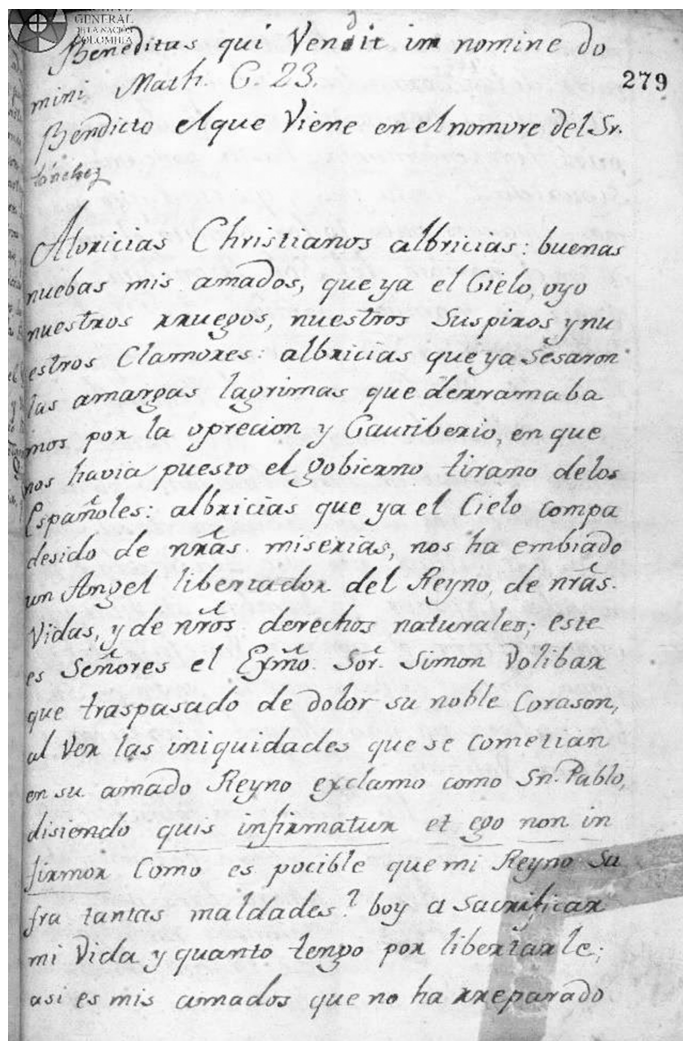 GENERAL
DE LA NACIÓN
COLOMBIA
Beneditus qui Vendit in nomine do
mini Math. C. 23.
279
Bendicto el que Viene en el nomvre del Sr.
Sánchez
Alvricias Christianos albricias: buenas
nuebas mis amados, que ya el Cielo, oyo
nuestros rruegos, nuestros Suspiros y nu
estros Clamores: albricias que ya Sesaron
las amargas lagrimas que derramaba
mos por la oprecion y Cautiberio, en que
nos havia puesto el gobierno tirano delos
Españoles: albricias que ya el Cielo compa
desido de nrãs. miserias, nos ha embiado
un Angel libertador del Reyno, de nrãs.
Vidas, y de nrõs. derechos naturales; este
es Señores el Exmõ. Sõr. Simon Volibar
que traspasado de dolor su noble Corason,
al Ver las iniquidades que se cometian
en su amado Reyno exclamo como Sn. Pablo,
disiendo quis infirmatur et ego non in
firmor Como es pocible que mi Reyno Su
fra tantas maldades? boy a Sacrificar
mi Vida y quanto tengo por libertarle;
asi es mis amados que no ha rreparado